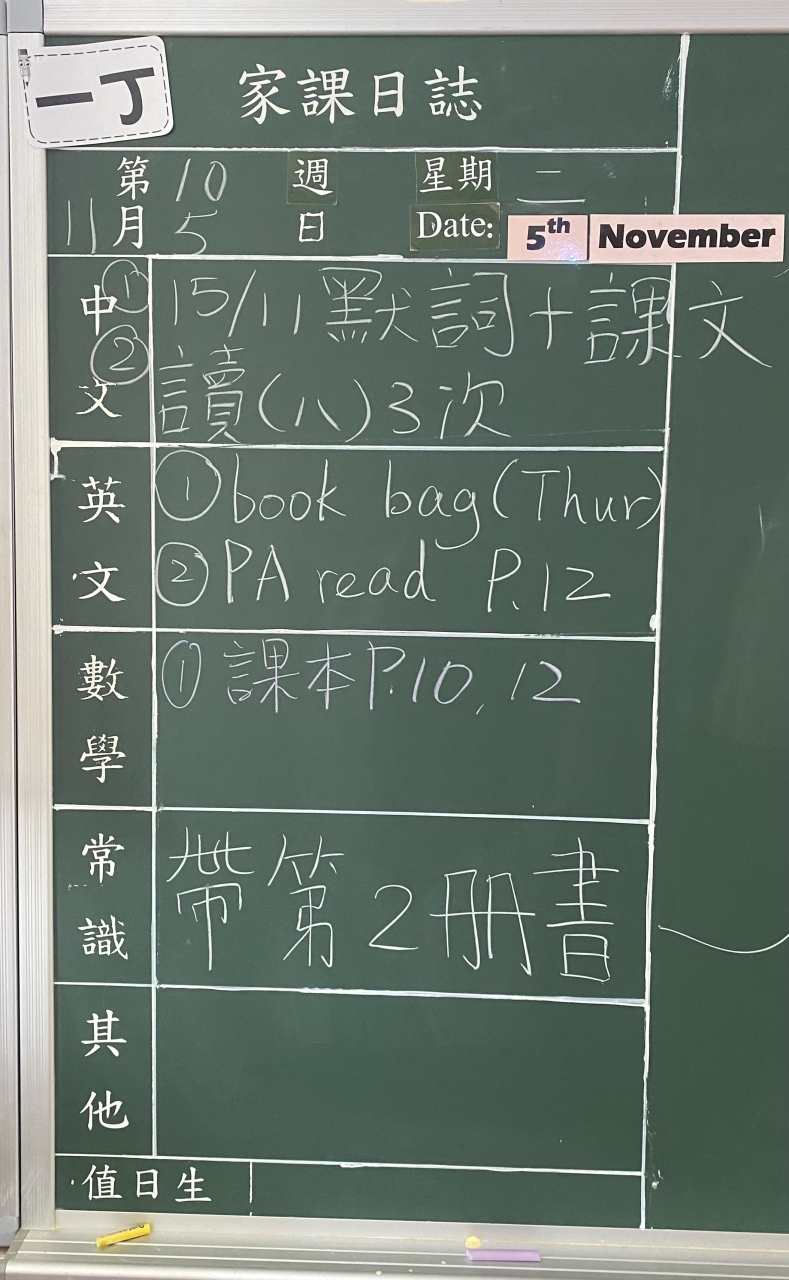 一丁
家課日誌
第 10 週 星期 二
11 月 5 日 Date: 5th November
中文 ① 15/11 默詞+課文
② 讀(八)3次
英文 ① book bag (Thur)
② PA read P.12
數學 ① 課本P.10, 12
常識 帶第2冊書
其他
值日生